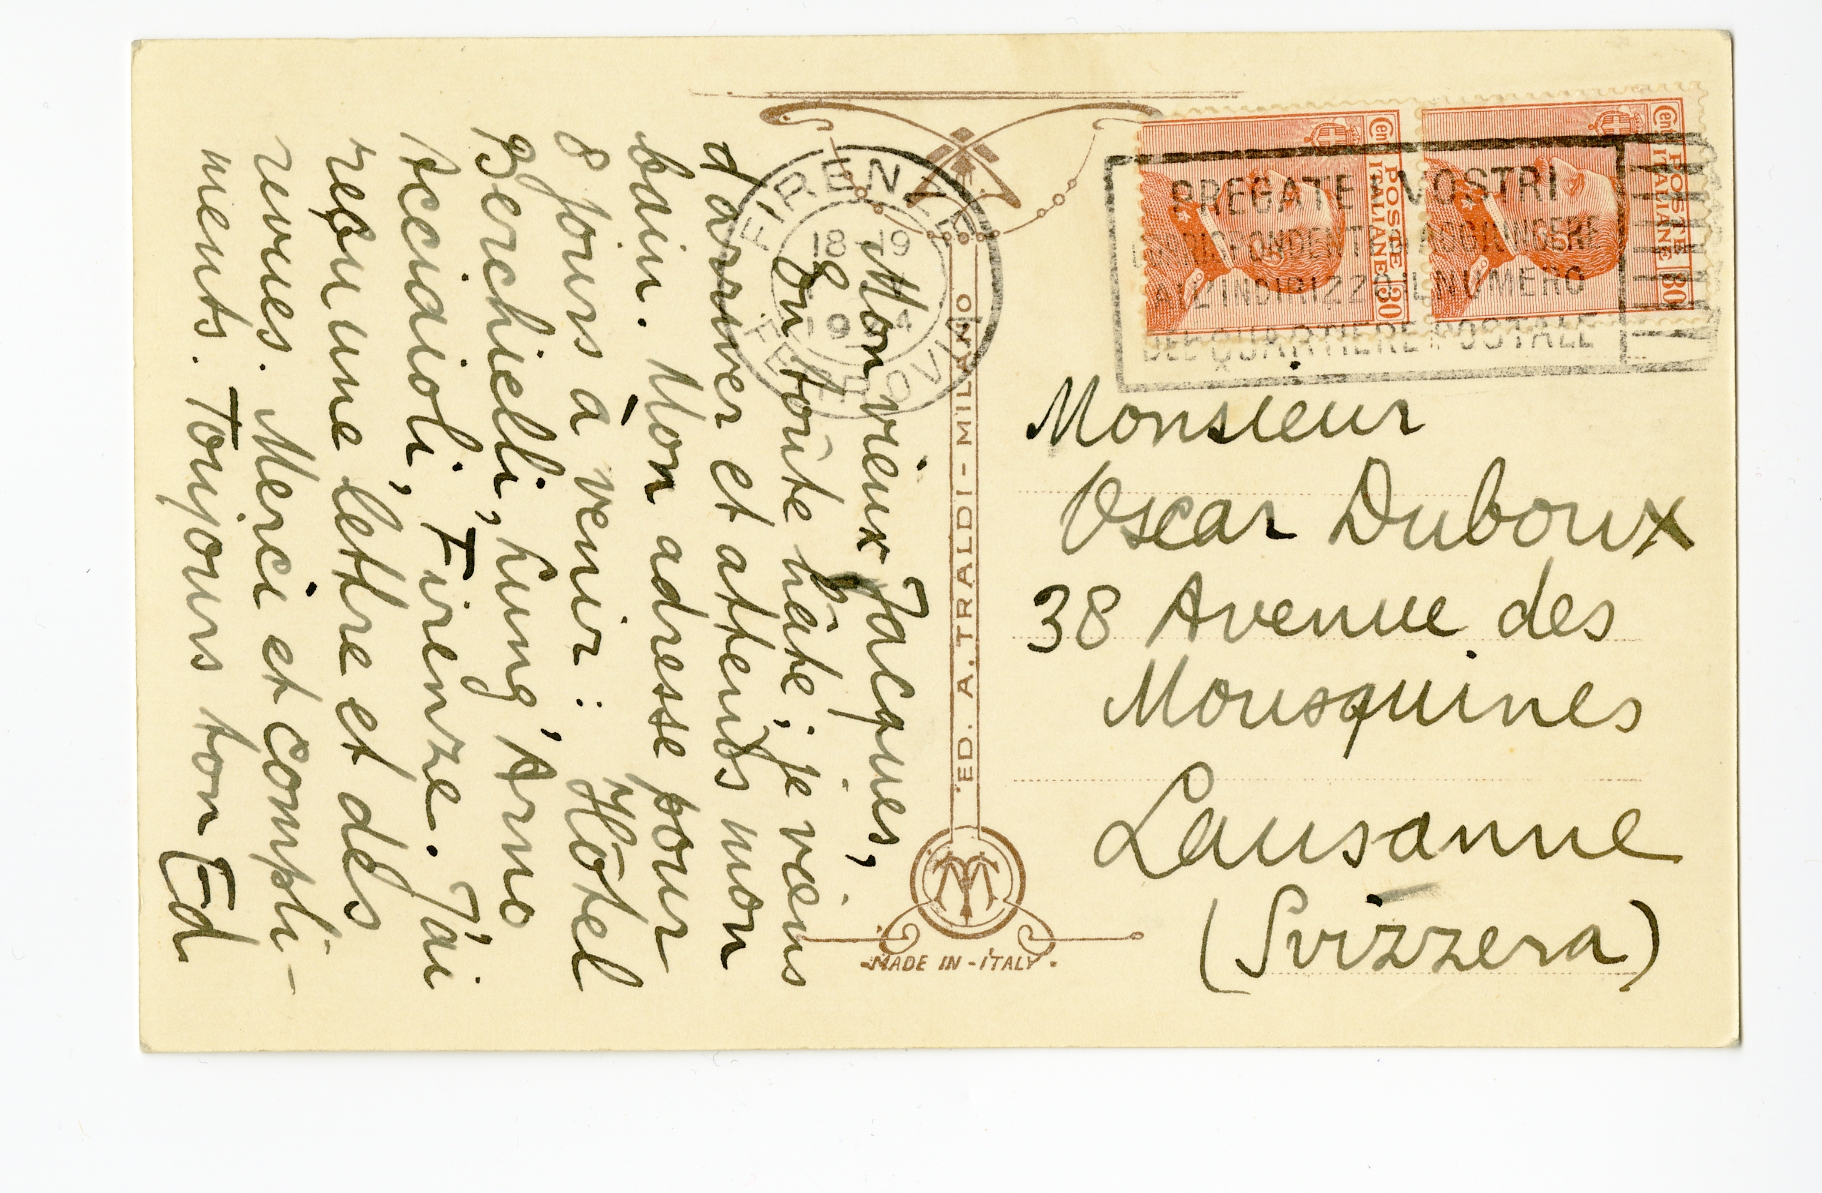 Mon vieux Jacques,
En toute hâte, je viens
d'arriver et attends mon
bain. Mon adresse pour
8 jours à venir : Hôtel
Berchielli, Lung'Arno
Acciaioli, Firenze. J'ai
reçu une lettre et des
revues. Merci et compli-
ments. Toujours ton Ed
FIRENZE
18-19
FERROVIA
ED. A. TRALDI - MILANO
MADE IN - ITALY
POSTE
ITALIANE
Cen
30
POSTE
ITALIANE
Cen
30
PREGATE I VOSTRI
CORRISPONDENTI DI AGGIUNGERE
ALL'INDIRIZZO IL NUMERO
DEL QUARTIERE POSTALE
Monsieur
Oscar Duboux
38 Avenue des
Mousquines
Lausanne
(Svizzera)